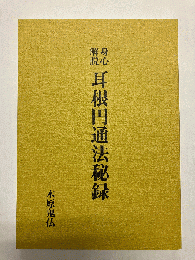 身心
解脱
耳根円通法秘録
木原鬼仏